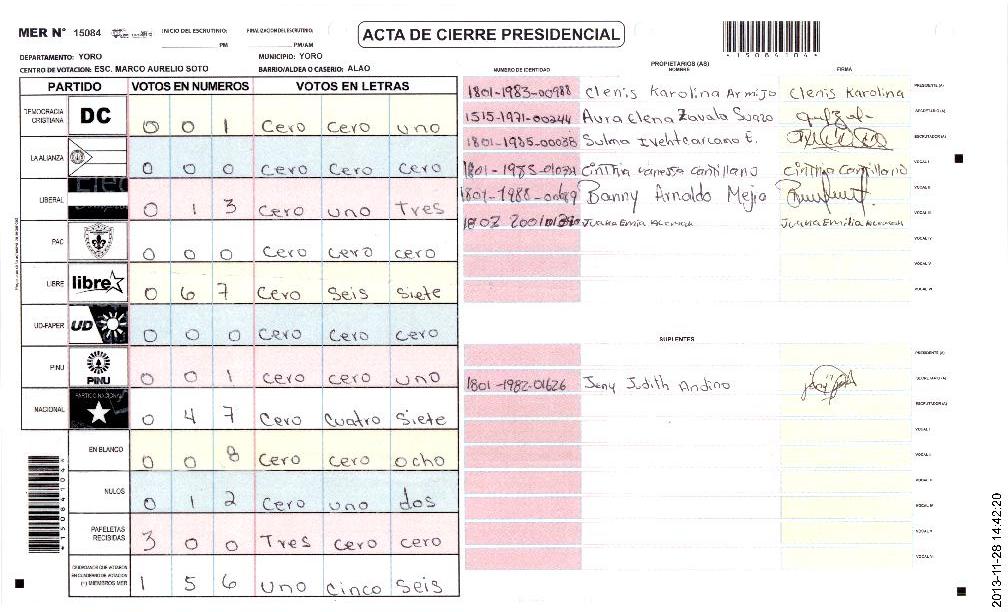 MER N° 15084 INICIO DEL ESCRUTINIO: PM FINALIZACION ESCRUTINIO: PM/AM
ACTA DE CIERRE PRESIDENCIAL
*15084104*
DEPARTAMENTO: YORO MUNICIPIO: YORO
CENTRO DE VOTACION: ESC. MARCO AURELIO SOTO BARRIO/ALDEA O CASERIO: ALAO
PROPIETARIOS (AS)
NUMERO DE IDENTIDAD NOMBRE FIRMA
PARTIDO VOTOS EN NUMEROS VOTOS EN LETRAS
DEMOCRACIA CRISTIANA DC 0 0 1 Cero Cero uno
LA ALIANZA 0 0 0 Cero Cero Cero
LIBERAL 0 1 3 Cero uno Tres
PAC 0 0 0 Cero Cero cero
LIBRE libre 0 6 7 Cero Seis Siete
UD-FAPER UD 0 0 0 Cero Cero Cero
PINU PINU 0 0 1 Cero cero uno
NACIONAL PARTIDO NACIONAL 0 4 7 Cero Cuatro Siete
EN BLANCO 0 0 8 Cero cero ocho
NULOS 0 1 2 Cero uno dos
PAPELETAS RECIBIDAS 3 0 0 Tres cero cero
CIUDADANOS QUE VOTARON EN CUADERNO DE VOTACION (+) MIEMBROS MER 1 5 6 uno Cinco Seis
1801-1983-00988 Clenis Karolina Armijo Clenis Karolina PRESIDENTE (A)
1515-1971-00244 Aura Elena Zavala Suazo SECRETARIO (A)
1801-1985-00038 Sulma ESCRUTADOR (A)
1801-1985- Cinthia vanessa cantillano Cinthia Cantillano VOCAL I
Banny Arnaldo Mejia VOCAL II
Juana Juana Emilia VOCAL III
VOCAL IV
VOCAL V
VOCAL VI
SUPLENTES
PRESIDENTE (A)
1801-1982-01626 Jeny Judith Andino SECRETARIO (A)
ESCRUTADOR (A)
VOCAL I
VOCAL II
VOCAL III
VOCAL IV
VOCAL V
VOCAL VI
*15084104*
2013-11-28 14:42:20